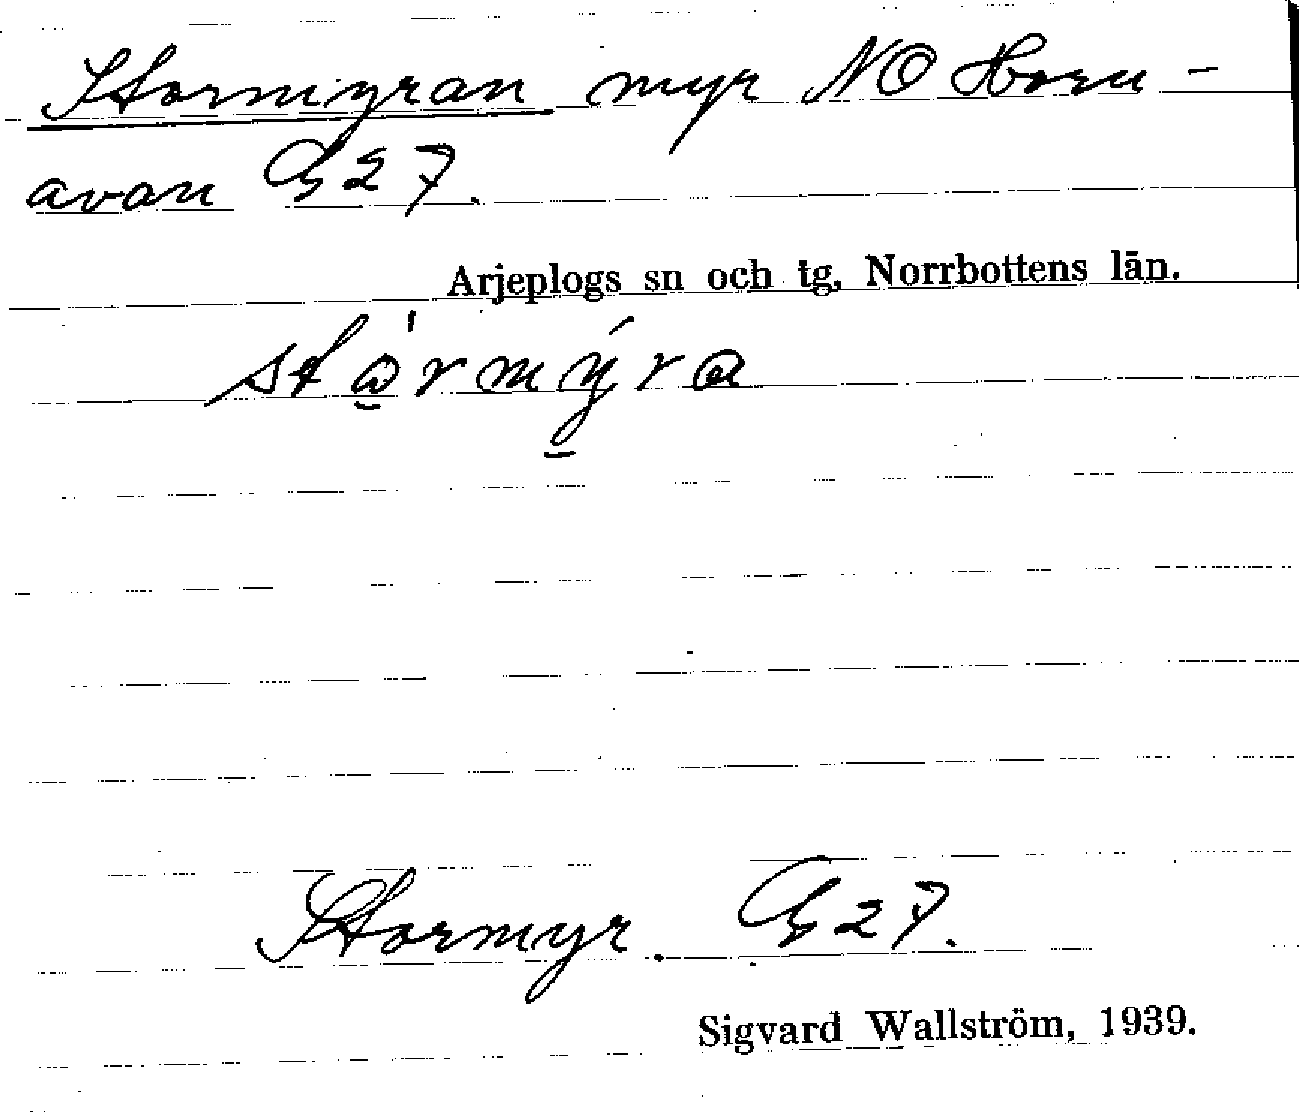 Stormyran myr NO Horn-
avan G27.
Arjeplogs sn och tg, Norrbottens län.
Stormyr. G27.
Sigvard Wallström, 1939.